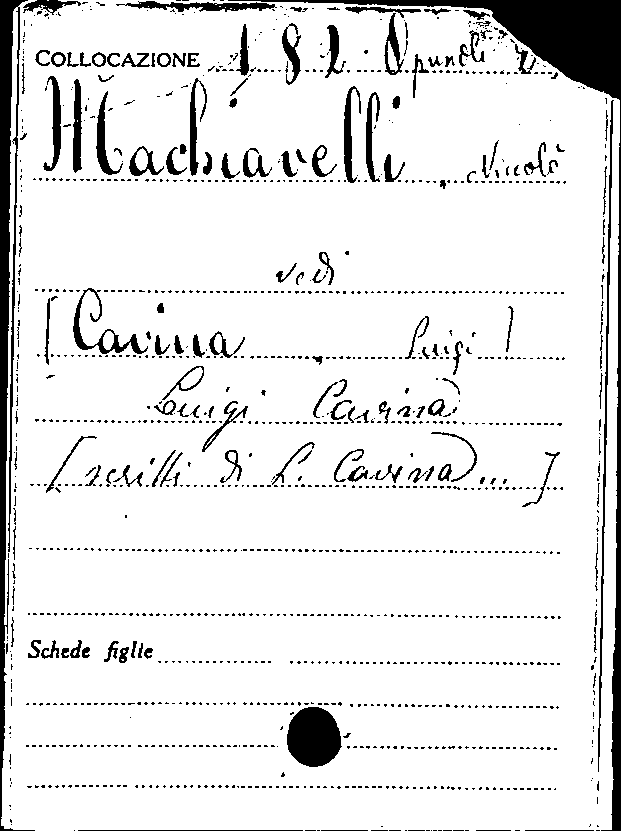 COLLOCAZIONE 182. Opuscoli
Machiavelli, Niccolò
vedi
[Cavina, Luigi]
Luigi Cavina
[scritti di L. Cavina...]
Schede figlie